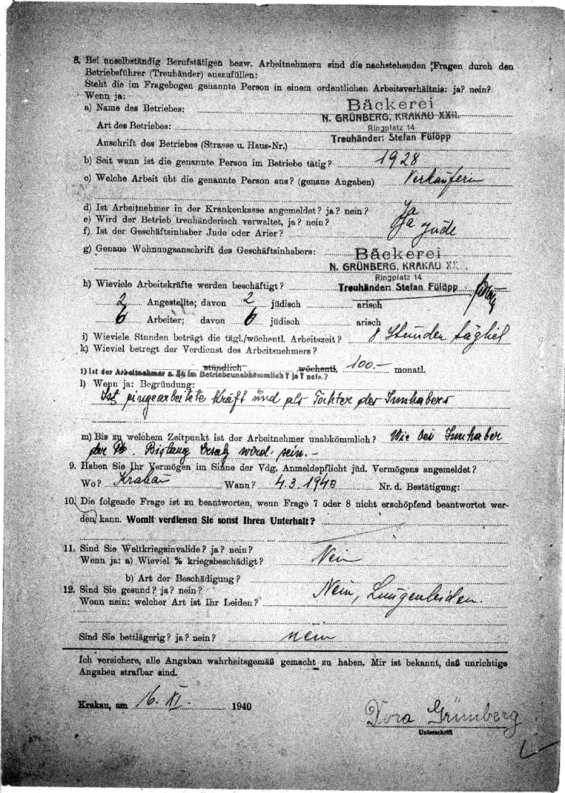 8. Bei unselbständig Berufstätigen bezw. Arbeitnehmern sind die nachstehenden Fragen durch den
Betriebsführer (Treuhänder) auszufüllen:
Steht die im Fragebogen genannte Person in einem ordentlichen Arbeitsverhältnis: ja? nein?
Wenn ja:
a) Name des Betriebes: Bäckerei
N. GRÜNBERG, KRAKAU XXII.
Art des Betriebes: Ringplatz 14
Treuhänder: Stefan Fülöpp
Anschrift des Betriebes (Strasse u. Haus-Nr.)
b) Seit wann ist die genannte Person im Betriebe tätig? 1928
c) Welche Arbeit übt die genannte Person aus? (genaue Angaben) Verkäuferin
d) Ist Arbeitnehmer in der Krankenkasse angemeldet? ja? nein? Ja
e) Wird der Betrieb treuhänderisch verwaltet, ja? nein? Ja
f) Ist der Geschäftsinhaber Jude oder Arier? Jude
g) Genaue Wohnungsanschrift des Geschäftsinhabers: Bäckerei
N. GRÜNBERG, KRAKAU
Ringplatz 14
h) Wieviele Arbeitskräfte werden beschäftigt? Treuhänder: Stefan Fülöpp
2 Angestellte; davon 2 jüdisch arisch
6 Arbeiter; davon 6 jüdisch arisch
i) Wieviele Stunden beträgt die tägl./wöchentl. Arbeitszeit? 8 Stunden täglich
k) Wieviel betregt der Verdienst des Arbeitnehmers?
stündlich wöchentl. 100.- monatl.
l) Ist der Arbeitnehmer z. Zt im Betriebe unabkömmlich? ja? nein?
l) Wenn ja: Begründung:
Ist eingearbeitete Kraft und als Tochter der Innhabers
m) Bis zu welchem Zeitpunkt ist der Arbeitnehmer unabkömmlich? Wie bei Innhaber
der wird sein.-
9. Haben Sie Ihr Vermögen im Sinne der Vdg. Anmeldepflicht jüd. Vermögens angemeldet?
Wo? Krakau Wann? 4.3.1940 Nr. d. Bestätigung:
10. Die folgende Frage ist zu beantworten, wenn Frage 7 oder 8 nicht erschöpfend beantwortet wer-
den kann. Womit verdienen Sie sonst Ihren Unterhalt?
11. Sind Sie Weltkriegsinvalide? ja? nein?
Wenn ja: a) Wieviel % kriegsbeschädigt? Nein
b) Art der Beschädigung?
12. Sind Sie gesund? ja? nein? Nein, Lungenleiden.
Wenn nein: welcher Art ist Ihr Leiden?
Sind Sie bettlägerig? ja? nein? nein
Ich versichere, alle Angaban wahrheitsgemäß gemacht zu haben. Mir ist bekannt, daß unrichtige
Angaben strafbar sind.
Krakau, am 16. XI. 1940
Dora Grünberg
Unterschrift